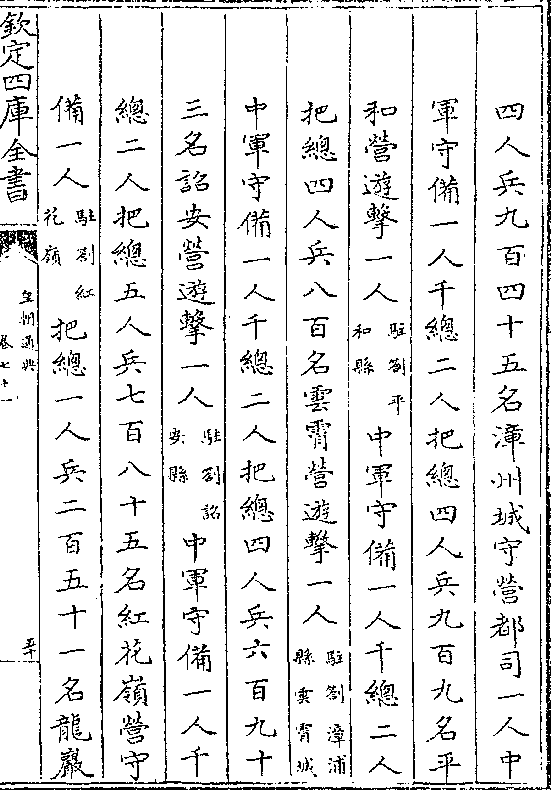 四人兵九百四十五名漳州城守營都司一人中
軍守備一人千總二人把總四人兵九百九名平
和營遊擊一人駐劄平和縣中軍守備一人千總二人
把總四人兵八百名雲霄營遊擊一人駐劄漳浦縣雲霄城
中軍守備一人千總二人把總四人兵六百九十
三名詔安營遊擊一人駐劄詔安縣中軍守備一人千
總二人把總五人兵七百八十五名紅花嶺營守
備一人駐劄紅花嶺把總一人兵二百五十一名龍巖
欽定四庫全書
皇朝通典
卷七十一